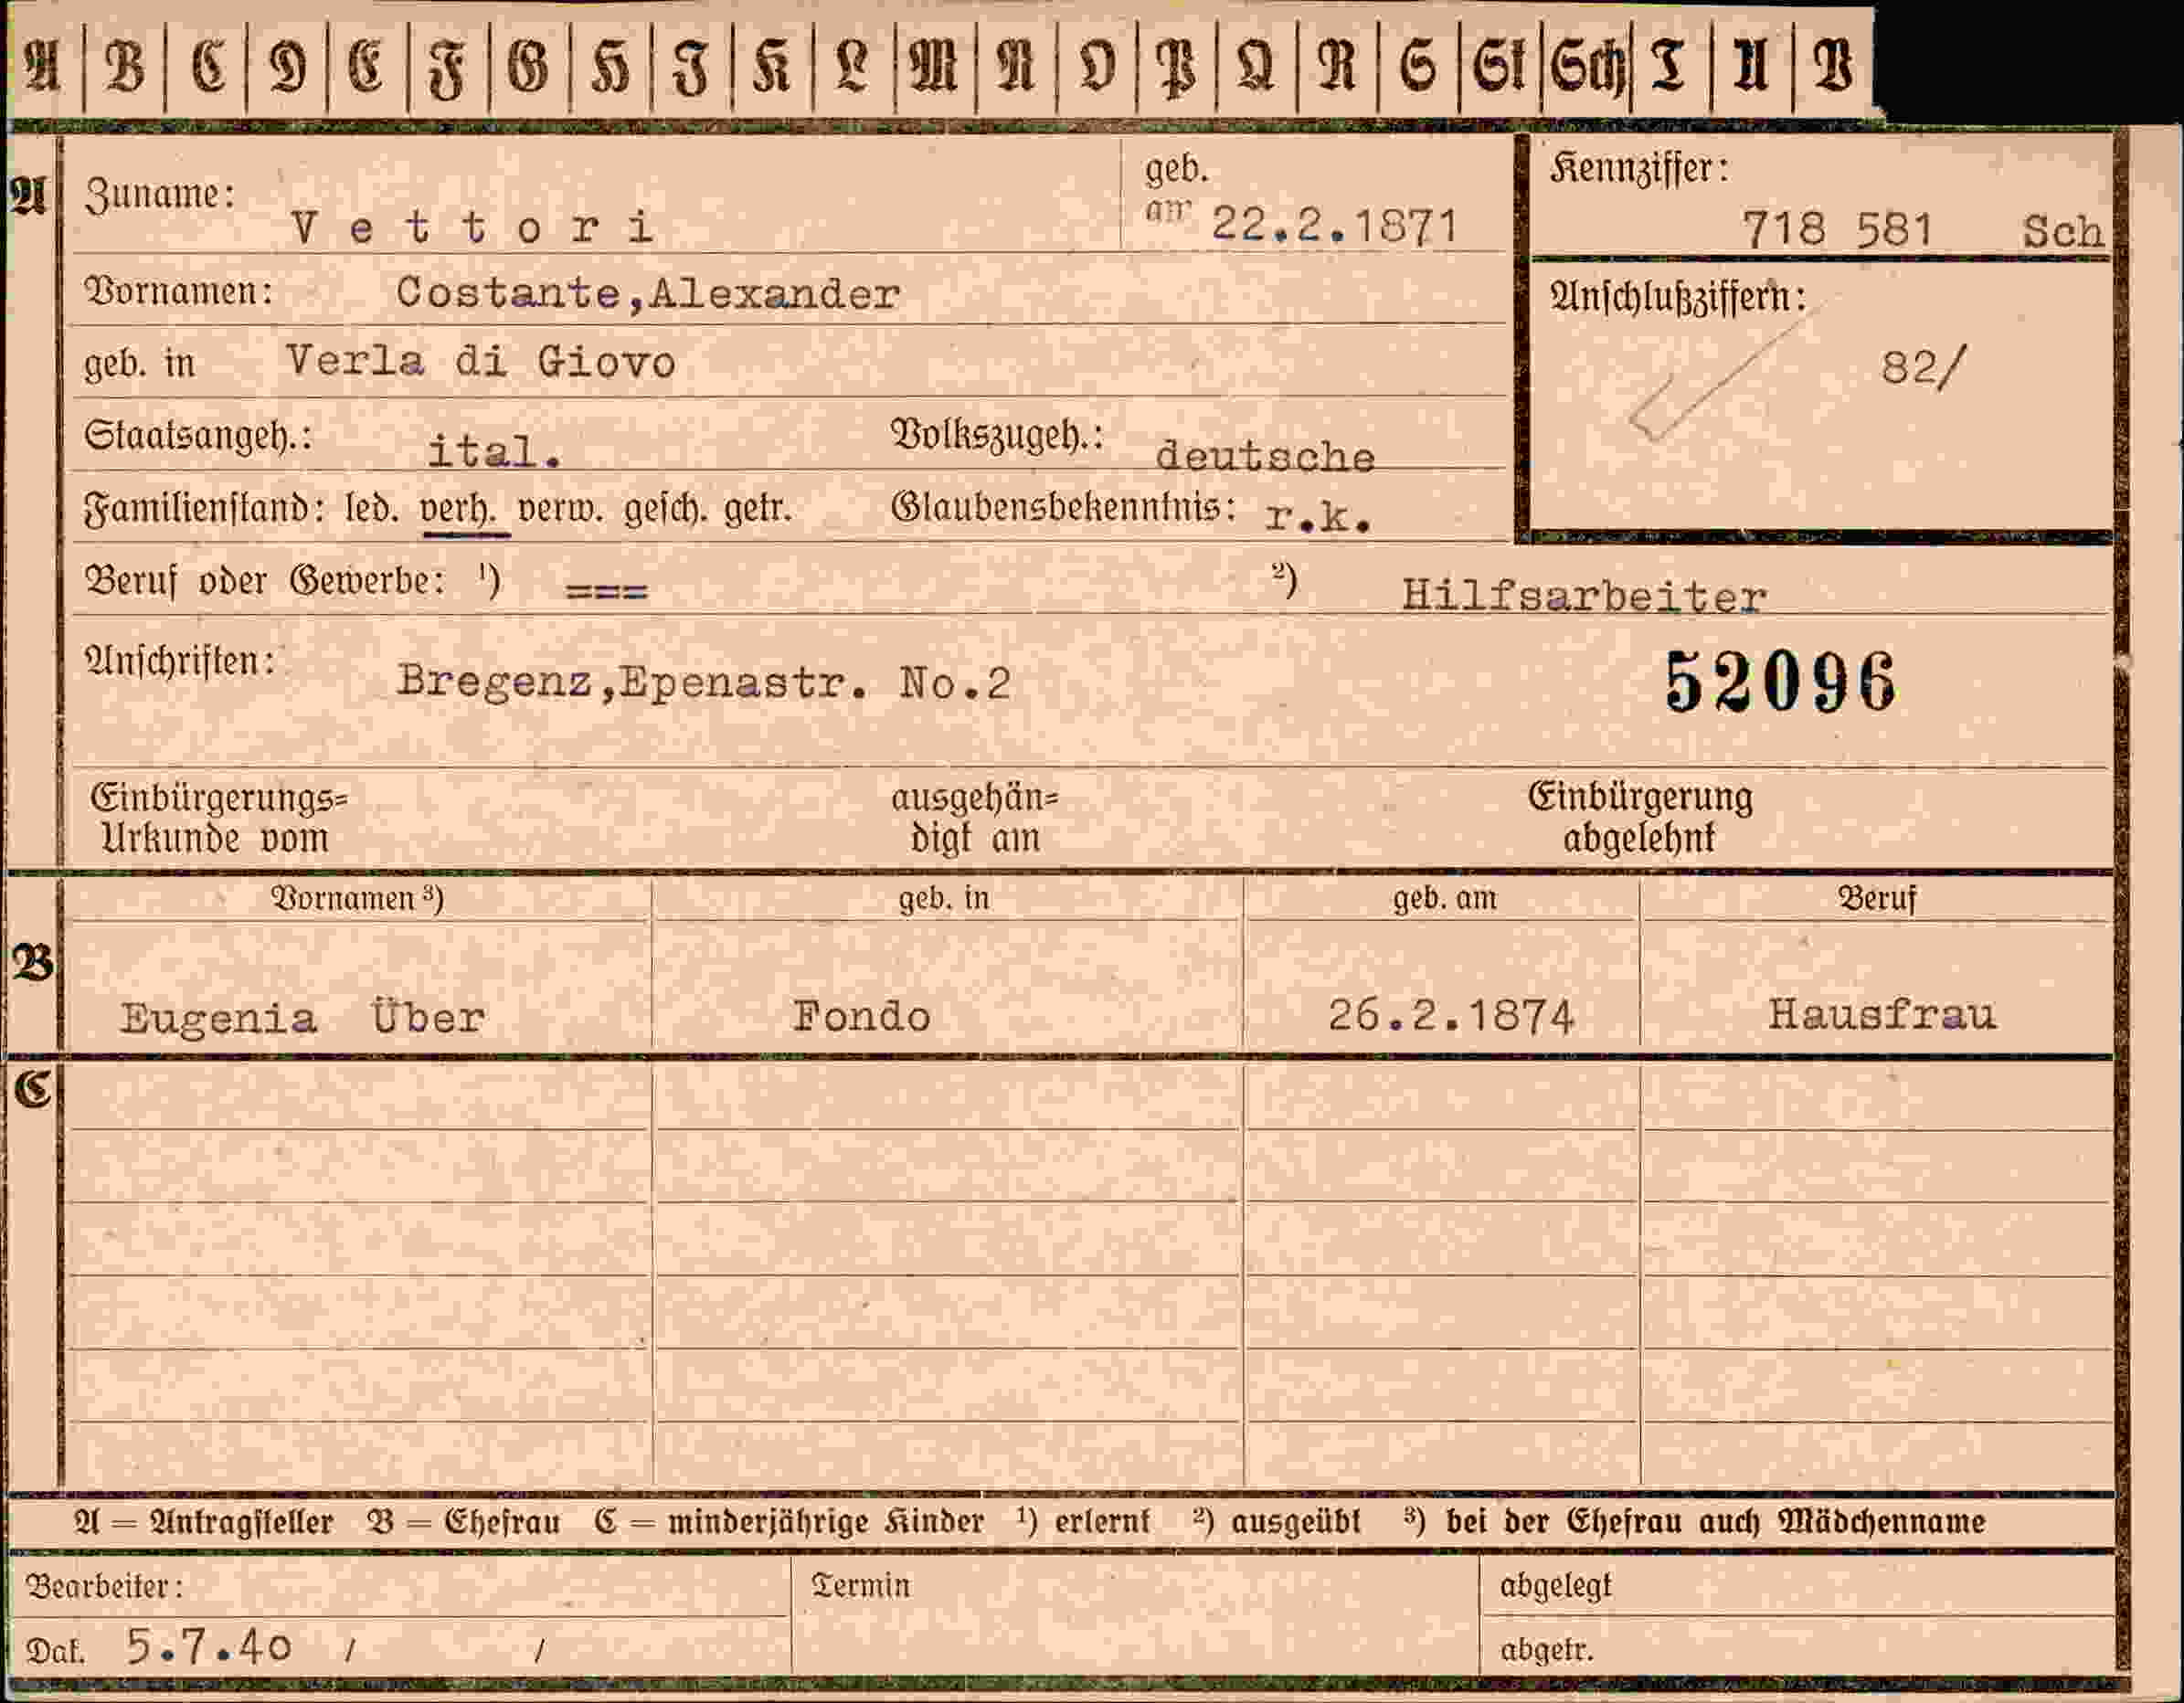 A | B | C | D | E | F | G | H | I | K | L | M | N | O | P | Q | R | S | St | Sch | T | U | V
A
Zuname: Vettori geb. am 22.2.1871
Kennziffer: 718 581 Sch
Vornamen: Costante,Alexander
Anschlußziffern: 82/
geb. in Verla di Giovo
Staatsangeh.: ital. Volkszugeh.: deutsche
Familienstand: led. verh. verw. gesch. getr. Glaubensbekenntnis: r.k.
Beruf oder Gewerbe: ¹) === ²) Hilfsarbeiter
Anschriften: Bregenz,Epenastr. No.2 52096
Einbürgerungs= ausgehän= Einbürgerung
Urkunde vom digt am abgelehnt
B
Vornamen ³) geb. in geb. am Beruf
Eugenia Über Fondo 26.2.1874 Hausfrau
C
A = Antragsteller B = Ehefrau C = minderjährige Kinder ¹) erlernt ²) ausgeübt ³) bei der Ehefrau auch Mädchenname
Bearbeiter: Termin abgelegt
Dat. 5.7.40 / / abgetr.